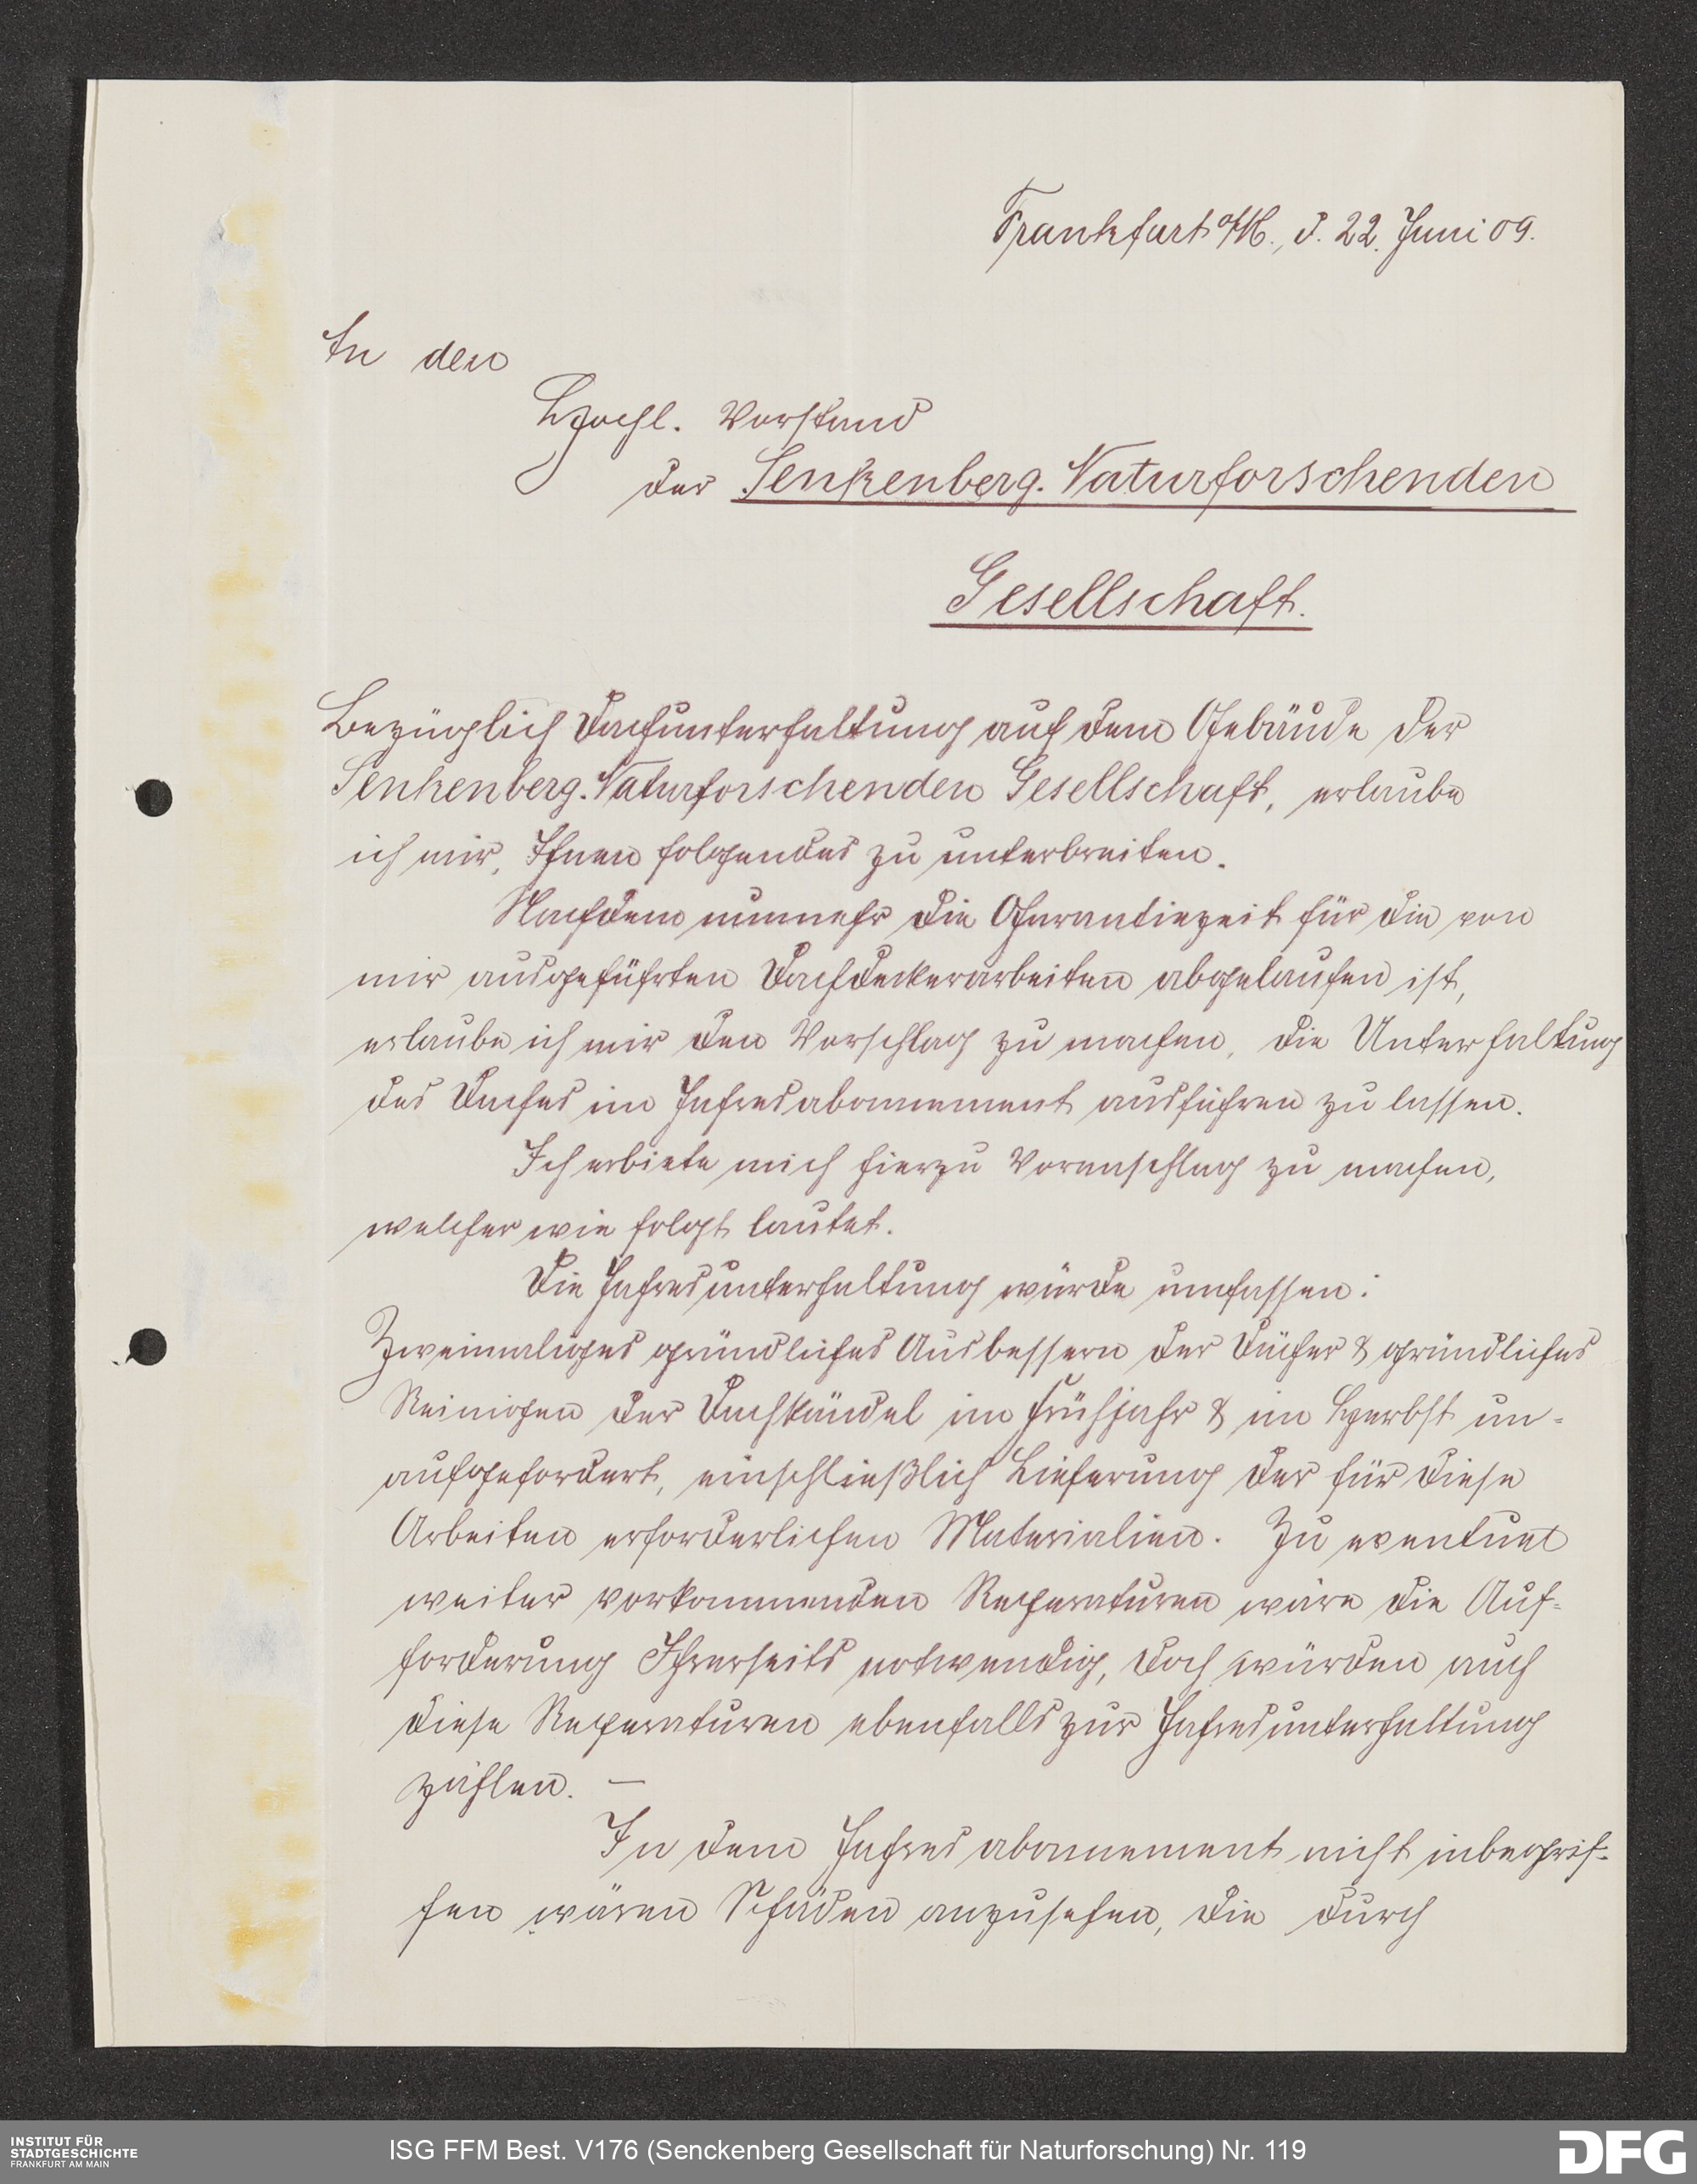 Frankfurt a/M., d. 22. Juni 09.
An den
Hochl. Vorstand
der Senkenberg. Naturforschenden
Gesellschaft.
Bezüglich Dachunterhaltung auf dem Gebäude der
Senkenberg. Naturforschenden Gesellschaft, erlaube
ich mir, Ihnen folgendes zu unterbreiten.
Nachdem nunmehr die Garantiezeit für die von
mir ausgeführten Dachdeckerarbeiten abgelaufen ist,
erlaube ich mir den Vorschlag zu machen, die Unterhaltung
des Daches im Jahresabonnement ausführen zu lassen.
Ich erbiete mich hierzu Voranschlag zu machen,
welcher wie folgt lautet.
Die Jahresunterhaltung würde umfassen:
Zweimaliges gründliches Ausbessern der Dächer & gründliches
Reinigen der Dachkändel im Frühjahr & im Herbst un-
aufgefordert, einschließlich Lieferung der für diese
Arbeiten erforderlichen Materialien. Zu eventuel
weiter vorkommenden Reperaturen wäre die Auf-
forderung Ihrerseits notwendig, doch würden auch
diese Reperaturen ebenfalls zur Jahresunterhaltung
zählen. —
In dem Jahresabonnement nicht inbegrif-
fen wären Schäden anzusehen, die durch
INSTITUT FÜR
STADTGESCHICHTE
FRANKFURT AM MAIN
ISG FFM Best. V176 (Senckenberg Gesellschaft für Naturforschung) Nr. 119
DFG